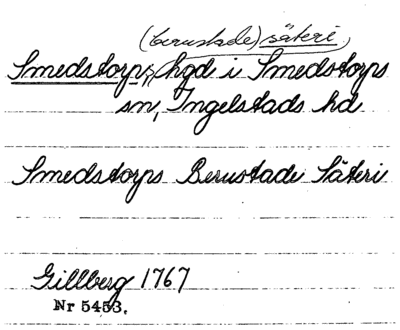 (berustade) säteri,
Smedstorps, hgd i Smedstorps
sn, Ingelstads hd
Smedstorps Berustade Säteri
Gillberg 1767
Nr 5453.